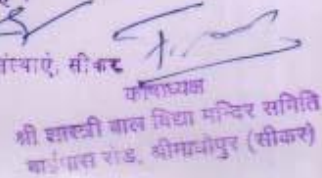 संस्थाएं, सीकर
कोषाध्यक्ष
श्री शास्त्री बाल विद्या मन्दिर समिति
बाईपास रोड, श्रीमाधोपुर (सीकर)